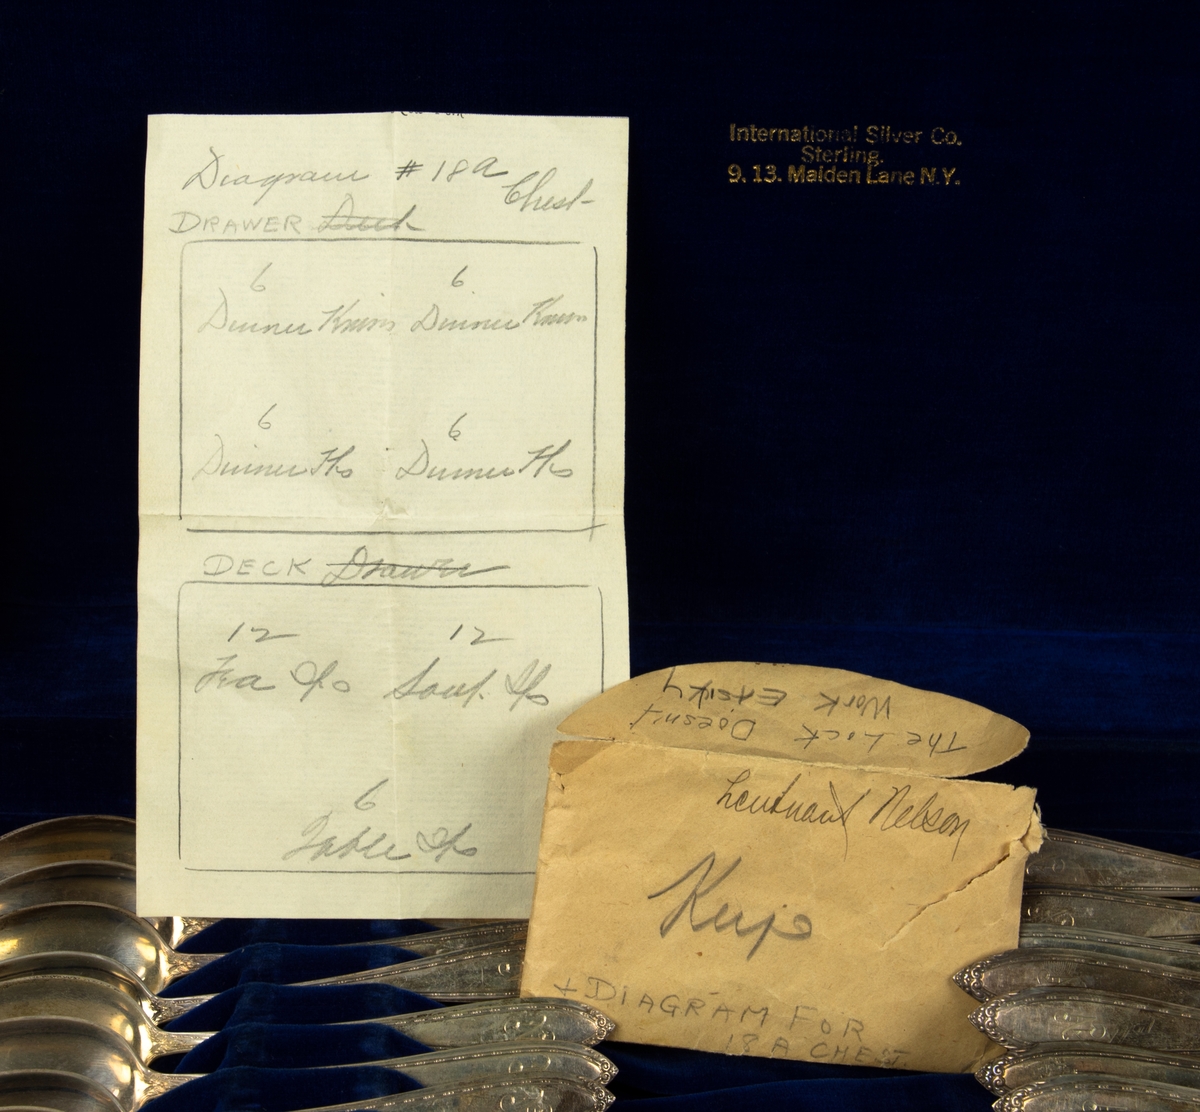 Diagram #18A
Chest
DRAWER Deck
6 6
Dinner Knivs Dinner Knivs
6 6
Dinner Fks Dinner Fks
DECK Drawer
12 12
Tea Sps Soup Sps
6
Table Sps
International Silver Co.
Sterling.
9. 13. Maiden Lane N.Y.
The Lock Doesn't
Work
Lieutnant Nelson
Keip
+ DIAGRAM FOR
18 A CHEST